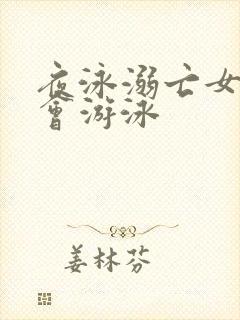 夜泳溺亡女
會游泳
姜林芬